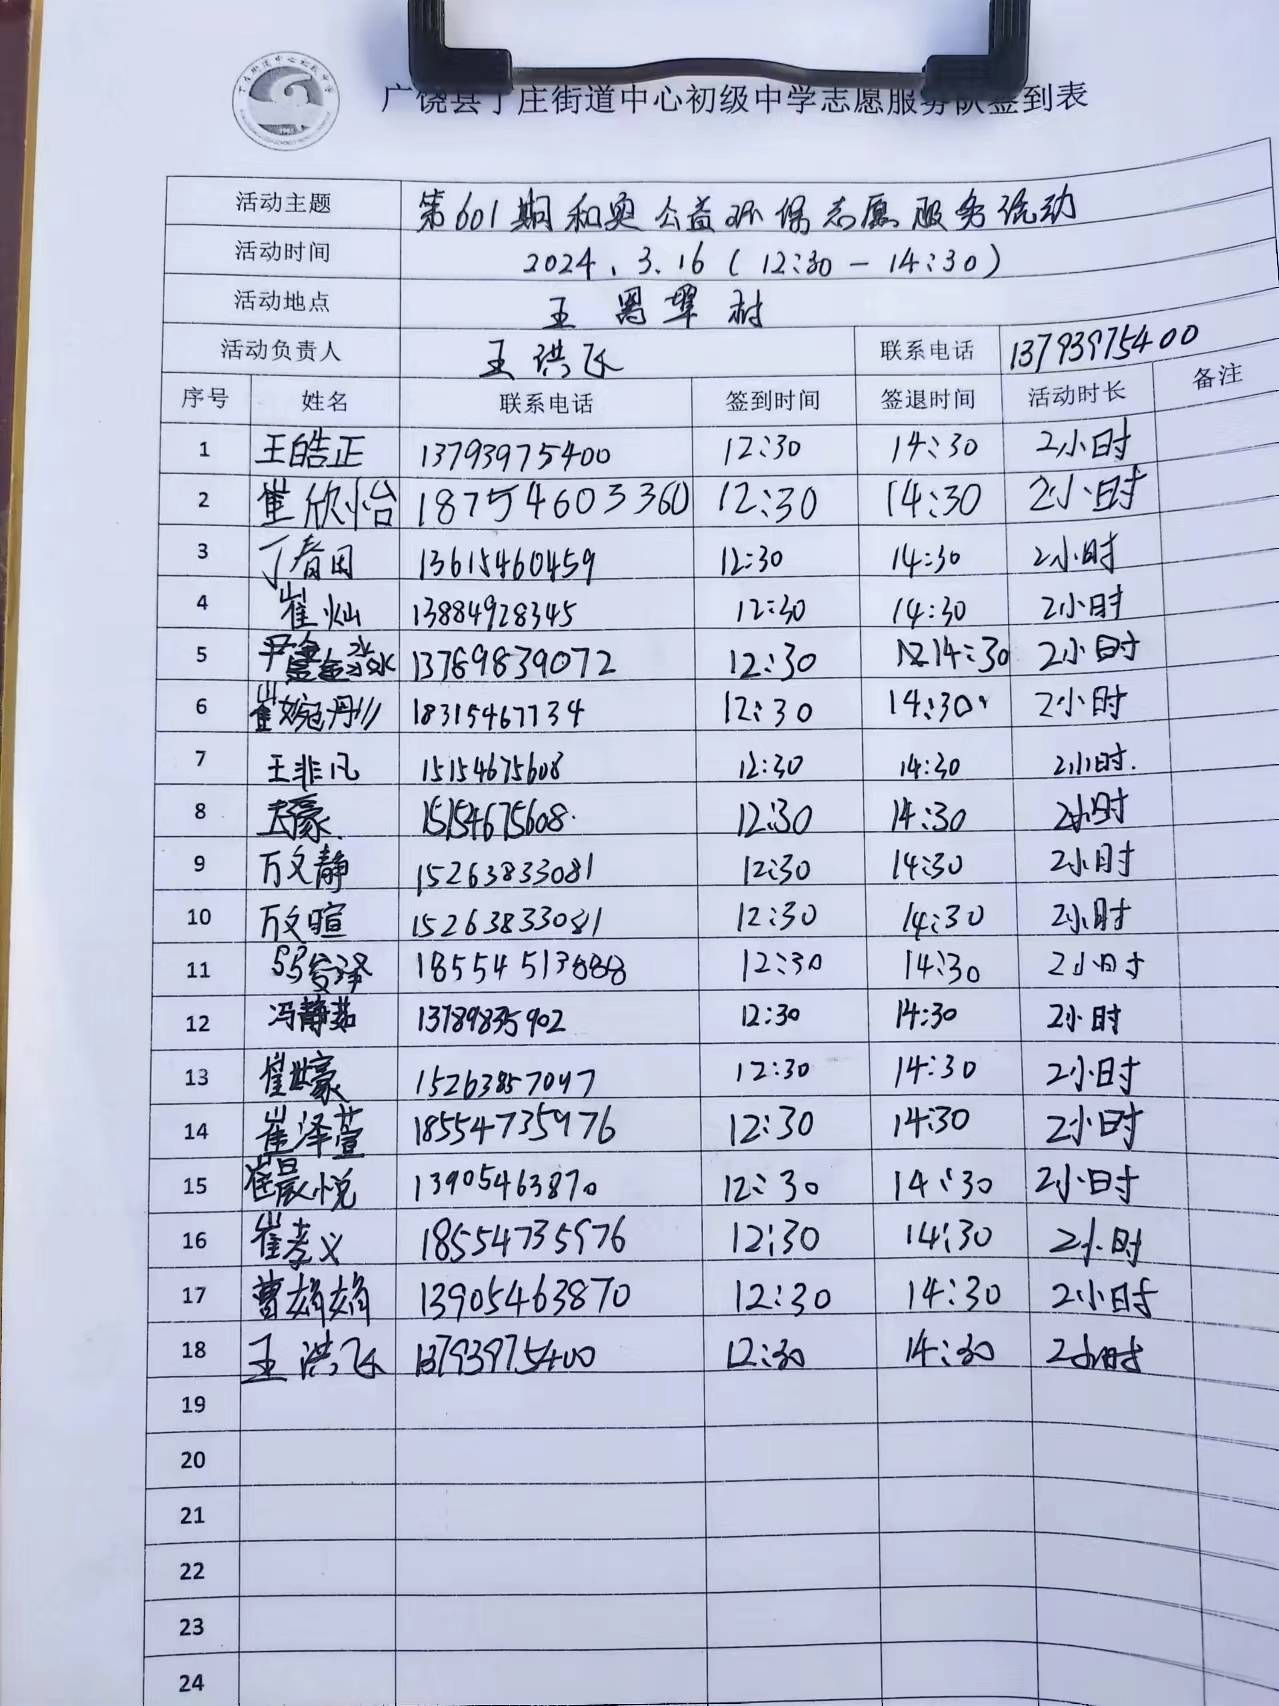 广饶县丁庄街道中心初级中学志愿服务队签到表
活动主题 第601期和奥公益环保志愿服务活动
活动时间 2024.3.16(12:30-14:30)
活动地点 王署埠村
活动负责人 王洪飞 联系电话 13793975400
序号 姓名 联系电话 签到时间 签退时间 活动时长 备注
1 王皓正 13793975400 12:30 14:30 2小时
2 崔欣怡 18754603360 12:30 14:30 2小时
3 丁春田 13615460459 12:30 14:30 2小时
4 崔灿 13884928345 12:30 14:30 2小时
5 尹鑫淼 13789839072 12:30 14:30 2小时
6 崔婉丹 18315467734 12:30 14:30 2小时
7 王非凡 15154675608 12:30 14:30 2小时.
8 15154675608. 12:30 14:30 2小时
9 万文静 15263833081 12:30 14:30 2小时
10 万文暄 15263833081 12:30 14:30 2小时
11 18554513888 12:30 14:30 2小时
12 冯静茹 13789835902 12:30 14:30 2小时
13 崔世豪 15263857047 12:30 14:30 2小时
14 崔泽萱 18554735976 12:30 14:30 2小时
15 崔晨悦 13905463870 12:30 14:30 2小时
16 崔孝义 18554735976 12:30 14:30 2小时
17 曹娟娟 13905463870 12:30 14:30 2小时
18 王洪飞 13793975400 12:30 14:30 2小时
19
20
21
22
23
24